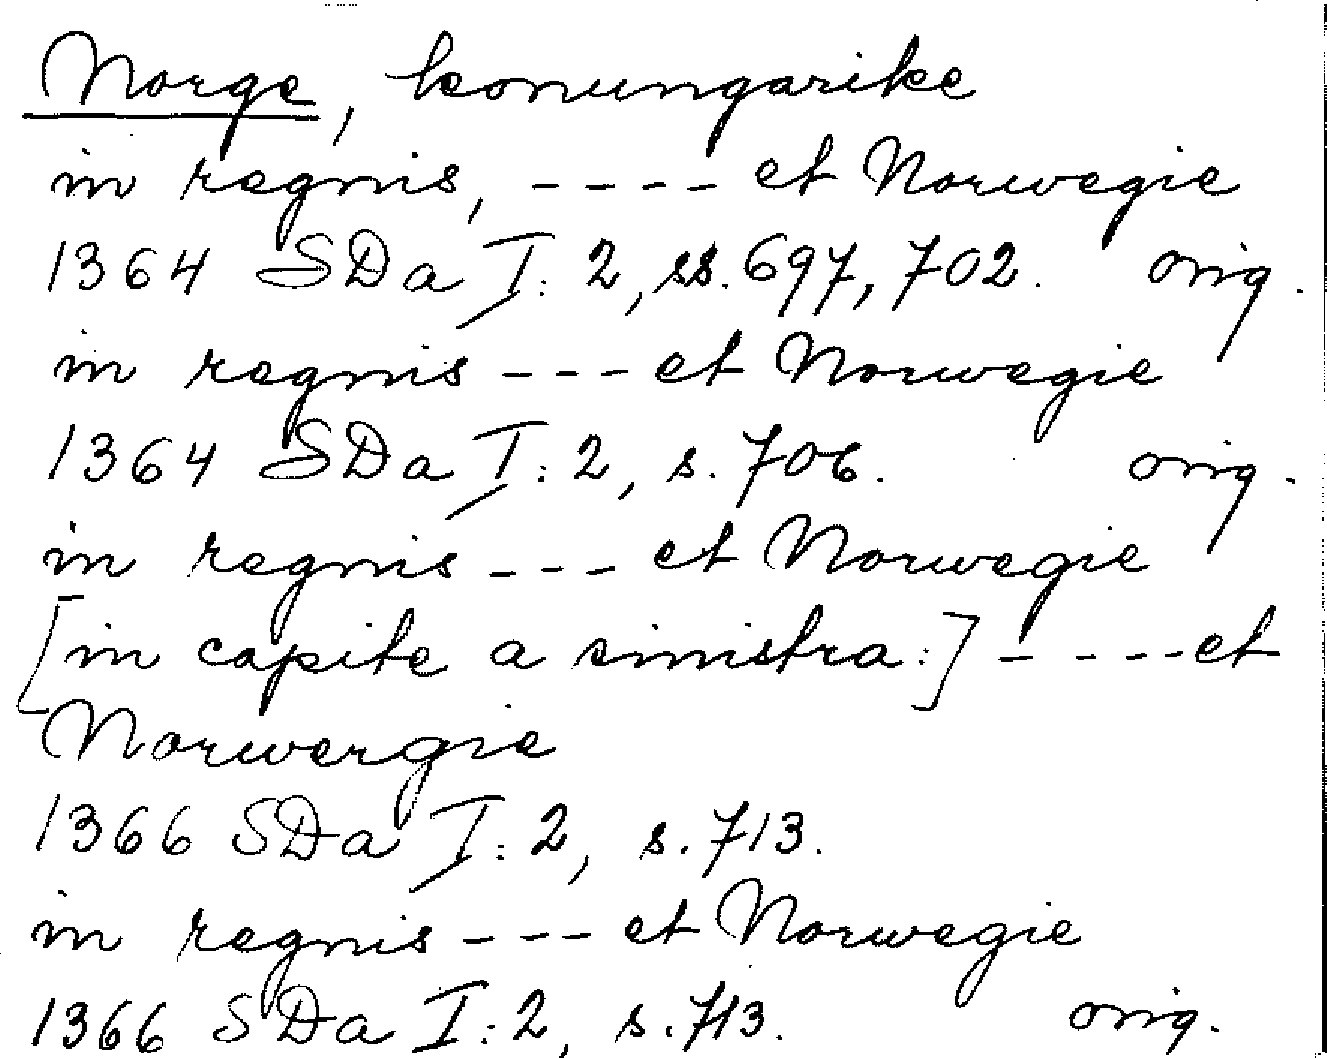 Norge, konungarike
in regnis, - - - - et Norwegie
1364 SDa I: 2, ss. 697, 702. orig.
in regnis - - - et Norwegie
1364 SDa I: 2, s. 706. orig.
in regnis - - - et Norwegie
[in capite a sinistra:] - - - - et
Norwergie
1366 SDa I: 2, s. 713.
in regnis - - - et Norwegie
1366 SDa I: 2, s. 713. orig.